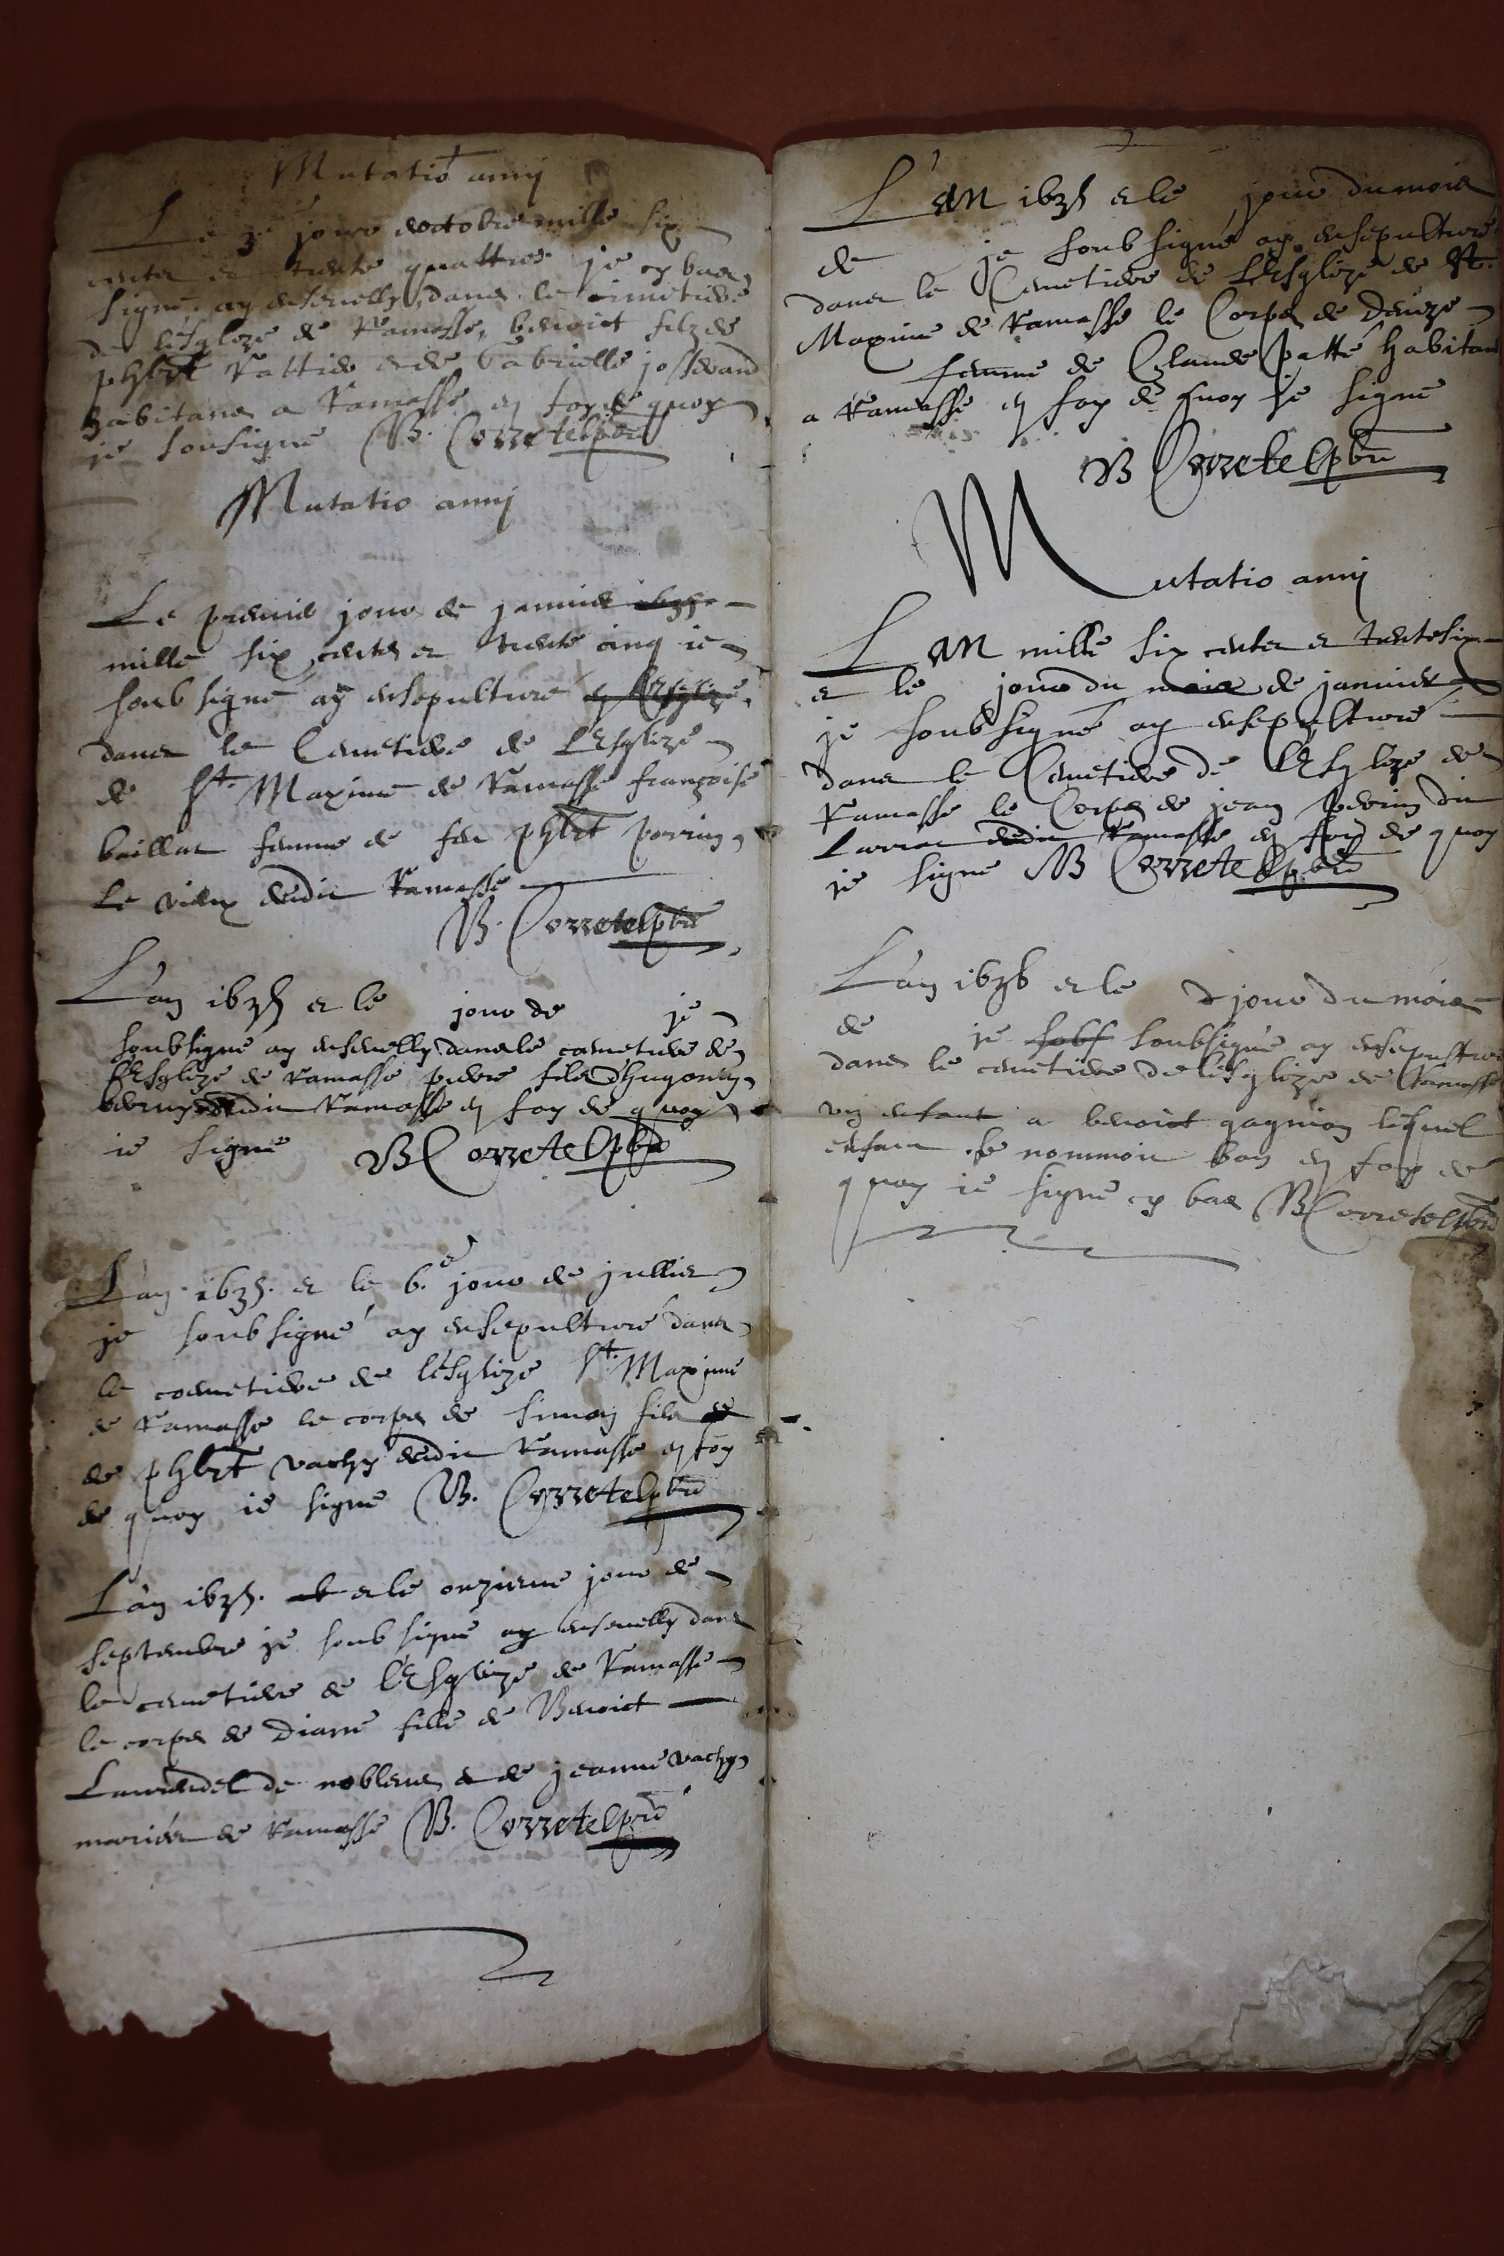 Mutatio annij
Le 3e jour doctobre mille six
centz et trente quattre je cy bas
signé ay ensevelly dans le cimetiere
de lesglize de Ramasse, benoict filz de
phbrt Rattier et de Gabrielle josserand
habitans a Ramasse en foy de quoy
je sousigne B. Corretel pbre
Mutatio annij
Le premie jour de januier
mille six centz et trente cinq ie
soub signé ay ensepulturé
dans le Cemetiere de LEsglize
de St. Maxime de Ramasse françoise
baillat femme de feu phbrt perrin
Le vieux dudit Ramasse
B. Corretel pbre
Lan 1635 et le jour de je
soubsigne ay ensevelly dans le cemetiere de
lEsglize de Ramasse pierre filz dhugonin
dudit Ramasse en foy de quoy
ie signe B Corretel pbre
Lan 1635. et le 6.e jour de jullier
je soubsigné ay ensepulturé dans
le coemetiere de lesglize St. Maxime
de Ramasse le corps de simon filz de
de phbrt vachy dudit Ramasse en foy
de quoy ie signe B. Corretel pbre
Lan 1635. et le onzieme jour de
septembre je soub signé ay ensevelly dans
le cemetiere de lEsglize de Ramasse
le corps de Diane fille de Benoict
Laurendel de noblens et de jeanne vachy
mariés de Ramasse B. Corretel pbre
LAN 1635 et le jour du mois
de je soub signé ay ensepulturé
dans le Cemetiere de LEsglize de St.
Maxime de Ramasse le Corps de Denize
femme de Claude patté habitant
a Ramasse en foy de quoy je signe
B Corretel pbre
Mutatio annij
LAN mille six centz et trentesix
et le jour du mois de januier
je soubsigné ay ensepulturé
dans le Cemetiere de lEsglize de
Ramasse le Corps de jean perrin dit
Larrat dudit Ramasse en foy de quoy
je signe B Corretel pbre
Lan 1636 et le jour du mois
de je sobs soubsigné ay ensepulturé
dans le cemetiere de lesglize de Ramasse
un enfant a benoict gagnion lequel
enfant se nommoit en foy de
quoy ie signe cy bas B Corretel pbre